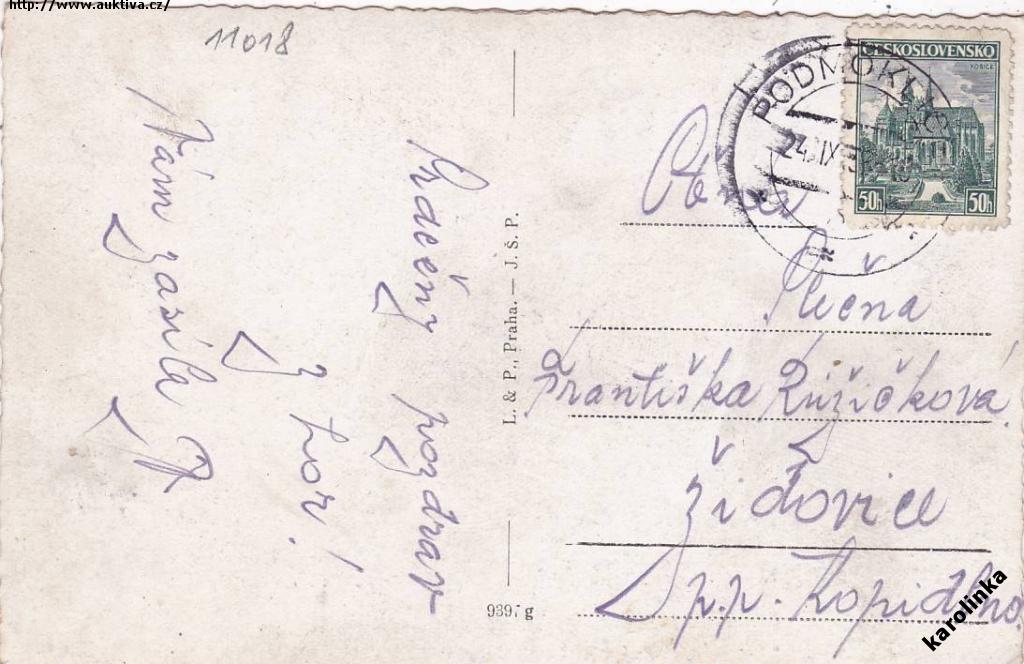 http://www.auktiva.cz/
11018
Srdečný pozdrav
z hor!
Vám zasílá
L. & P., Praha. — J. Š. P.
939 g
PODMOKLY
24. IX
ČESKOSLOVENSKO
KOŠICE
50h 50h
Ct.
Slečna
Františka Růžičková
Židovice
p.p. Kopidlno.
karolinka